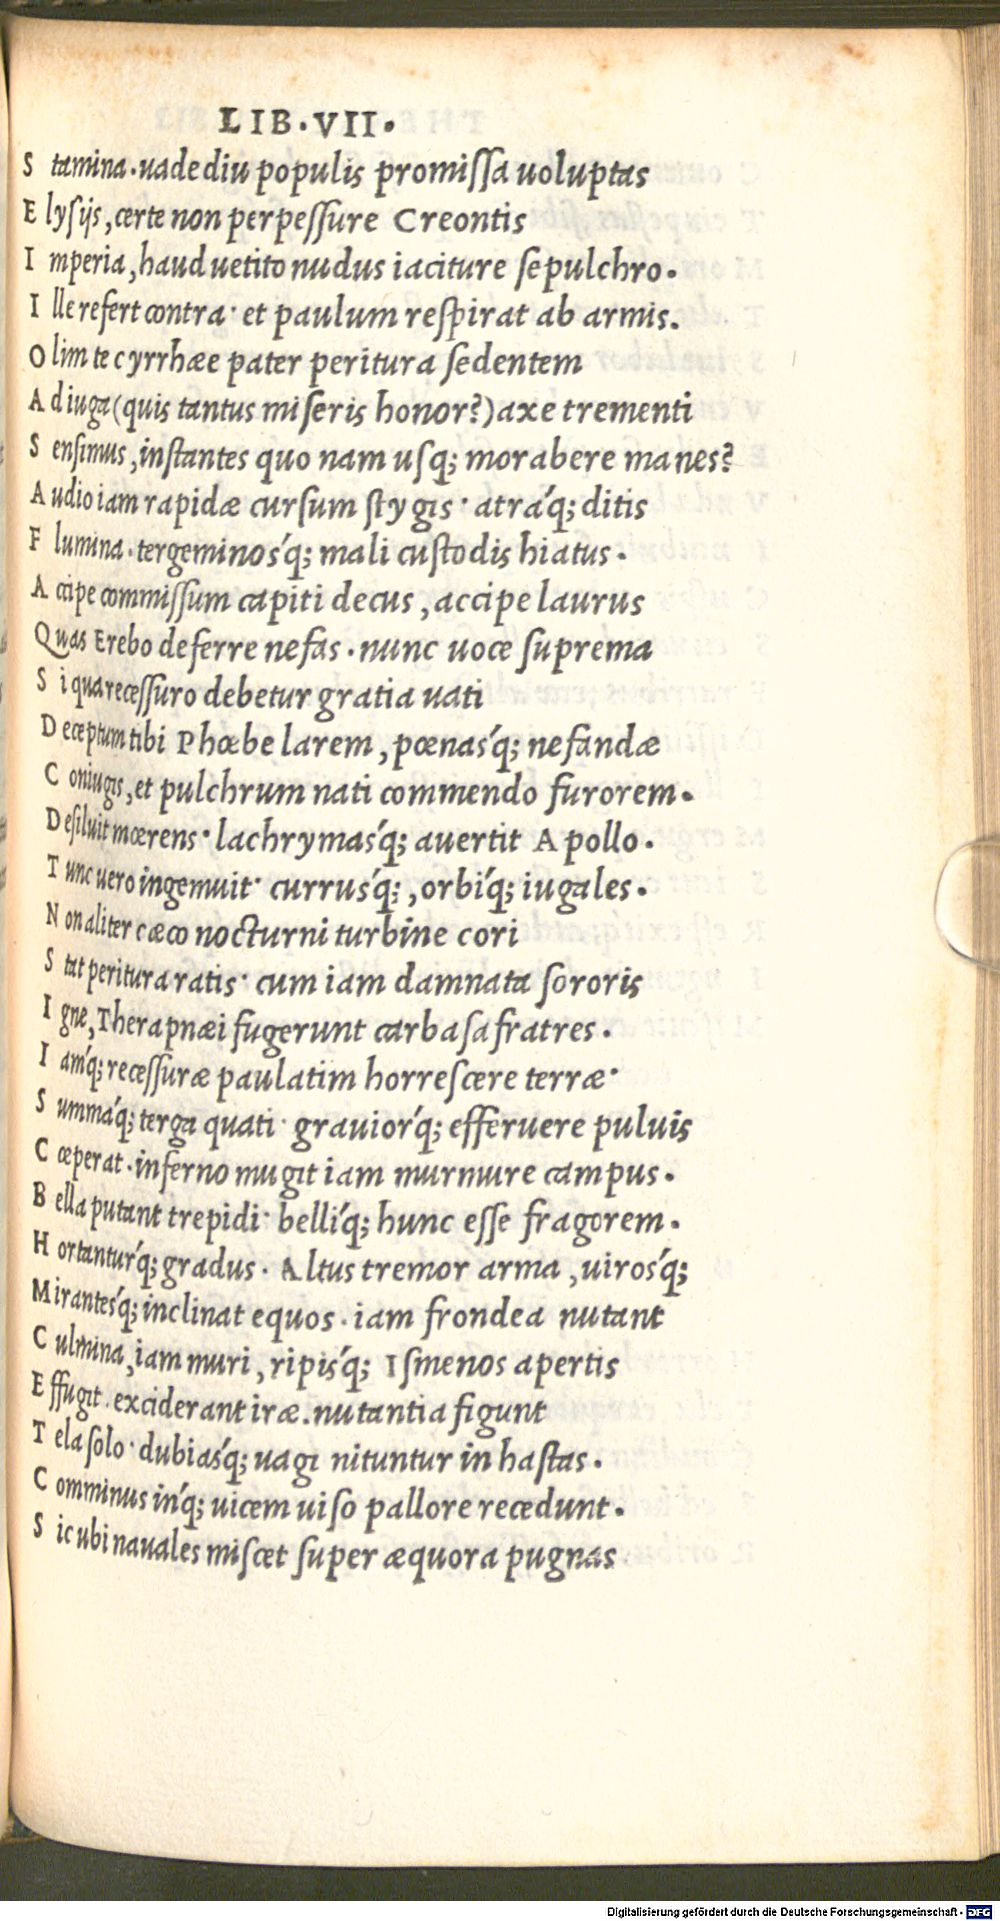 LIB.VII.
S tamina.uade diu populis promiſſa uoluptas
E lyſijs, certe non perpeſſure Creontis
I mperia, haud uetito nudus iaciture ſepulchro.
I lle refert contra· et paulum reſpirat ab armis.
O lim te cyrrhæe pater peritura ſedentem
A d iuga (quis tantus miſeris honor?) axe trementi
S enſimus, inſtantes quo nam uſq; morabere manes?
A udio iam rapidæ curſum ſtygis· atráq; ditis
F lumina.tergeminosq́; mali cuſtodis hiatus.
A ccipe commiſſum capiti decus, accipe laurus
Quas Erebo deferre nefas.nunc uoce ſuprema
S i qua receſſuro debetur gratia uati
D eceptum tibi Phœbe larem, pœnasq́; nefandæ
C oniugis, et pulchrum nati commendo furorem.
D eſiluit mœrens· lachrymasq́; auertit Apollo.
T unc uero ingemuit· currusq́;, orbiq́; iugales.
N on aliter cæco nocturni turbine cori
S tat peritura ratis· cum iam damnata ſororis
I gne, Therapnæi fugerunt carbaſa fratres.
I amq́; receſſuræ paulatim horreſcere terræ·
S ummaq́; terga quati· grauiorq́; efferuere puluis
C œperat.inferno mugit iam murmure campus.
B ella putant trepidi· belliq́; hunc eſſe fragorem.
H ortanturq́; gradus. Altus tremor arma, uirosq́;
Mirantesq́; inclinat equos.iam frondea nutant
C ulmina, iam muri, ripisq́; Iſmenos apertis
E ffugit.exciderant iræ.nutantia figunt
T ela ſolo· dubiasq́; uagi nituntur in haſtas.
C omminus inq́; uicem uiſo pallore recedunt.
S ic ubi nauales miſcet ſuper æquora pugnas
Digitalisierung gefördert durch die Deutsche Forschungsgemeinschaft - DFG